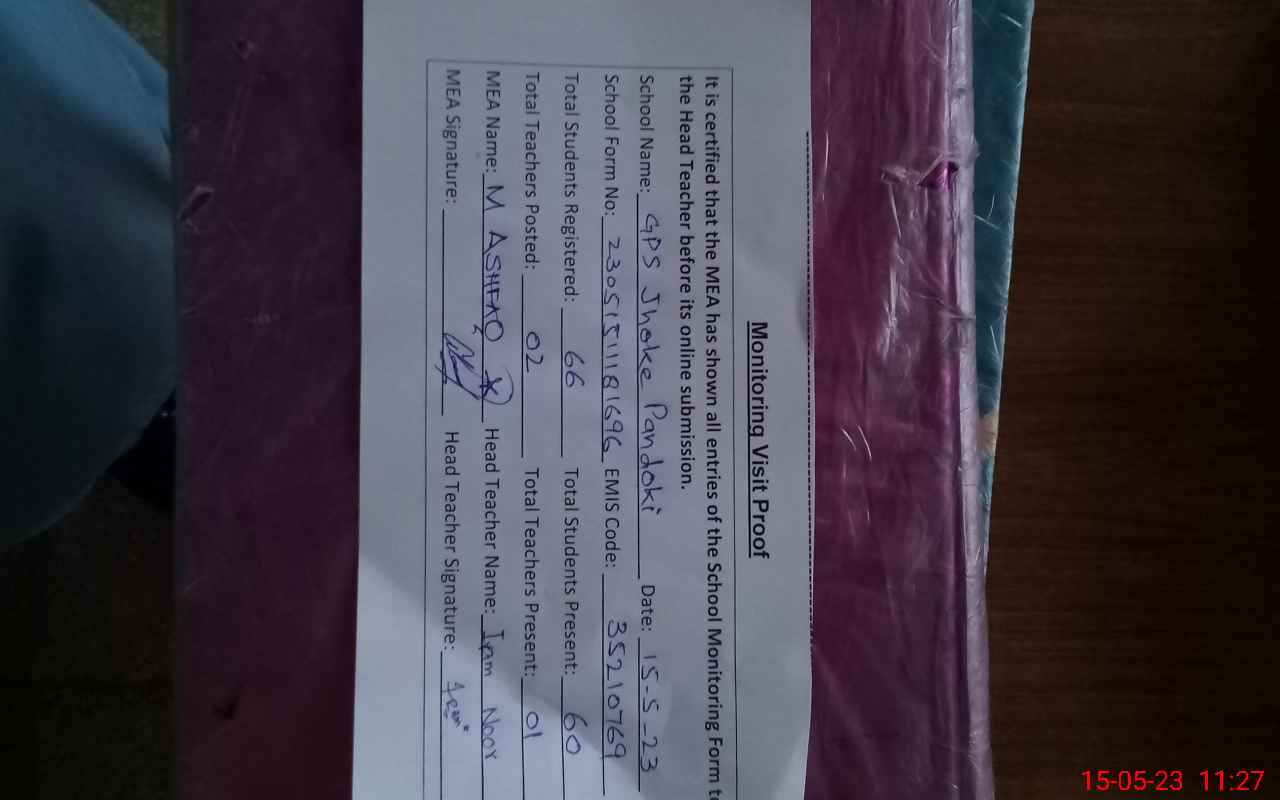 Monitoring Visit Proof
It is certified that the MEA has shown all entries of the School Monitoring Form to
the Head Teacher before its online submission.
School Name: GPS Jhoke Pandoki Date: 15-5-23
School Form No: 23051511181696 EMIS Code: 35210769
Total Students Registered: 66 Total Students Present: 60
Total Teachers Posted: 02 Total Teachers Present: 01
MEA Name: M ASHFAQ Head Teacher Name: Iram Noor
MEA Signature: Head Teacher Signature:
15-05-23 11:27